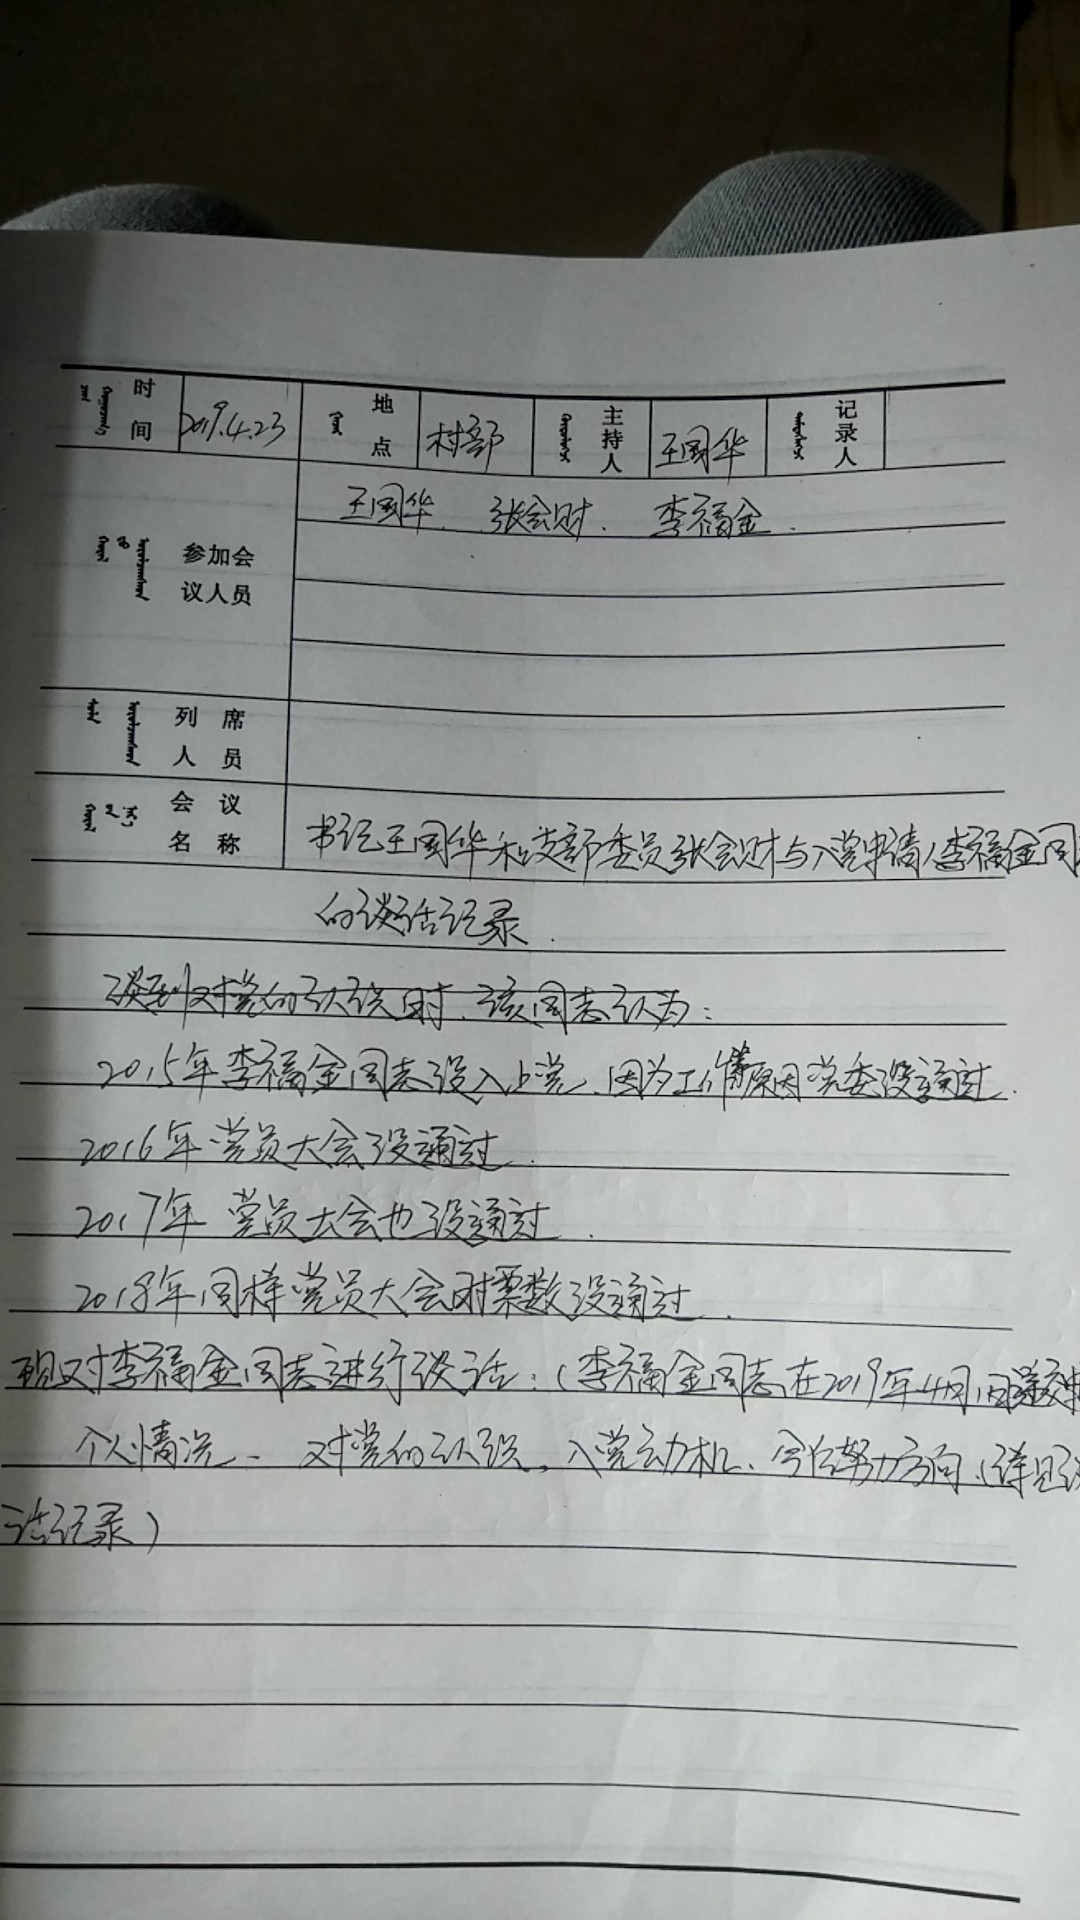 时间 2019.4.23 地点 村部 主持人 王国华 记录人
参加会议人员 王国华、张会财、李福金.
列席人员
会议名称 书记王国华和支部委员张会财与入党申请人李福金同
的谈话记录.
谈到对党的认识时,该同志认为:
2015年李福金同志没入上党、因为工作原因党委没通过.
2016年党员大会没通过.
2017年 党员大会也没通过.
2018年同样党员大会时票数没通过.
现对李福金同志进行谈话:(李福金同志在2019年4月
个人情况、对党的认识、入党动机、今后努力方向.(详见
话记录)